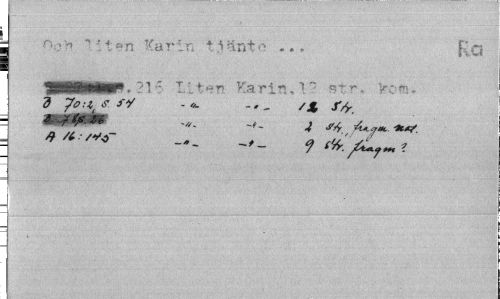 Och liten Karin tjänte ... Ra
s.216 Liten Karin.12 str. kom.
B 70:2, s. 54 -"- -"- 12 str.
-"- -"- 2 str., fragm. not.
A 16:145 -"- -"- 9 str. fragm?